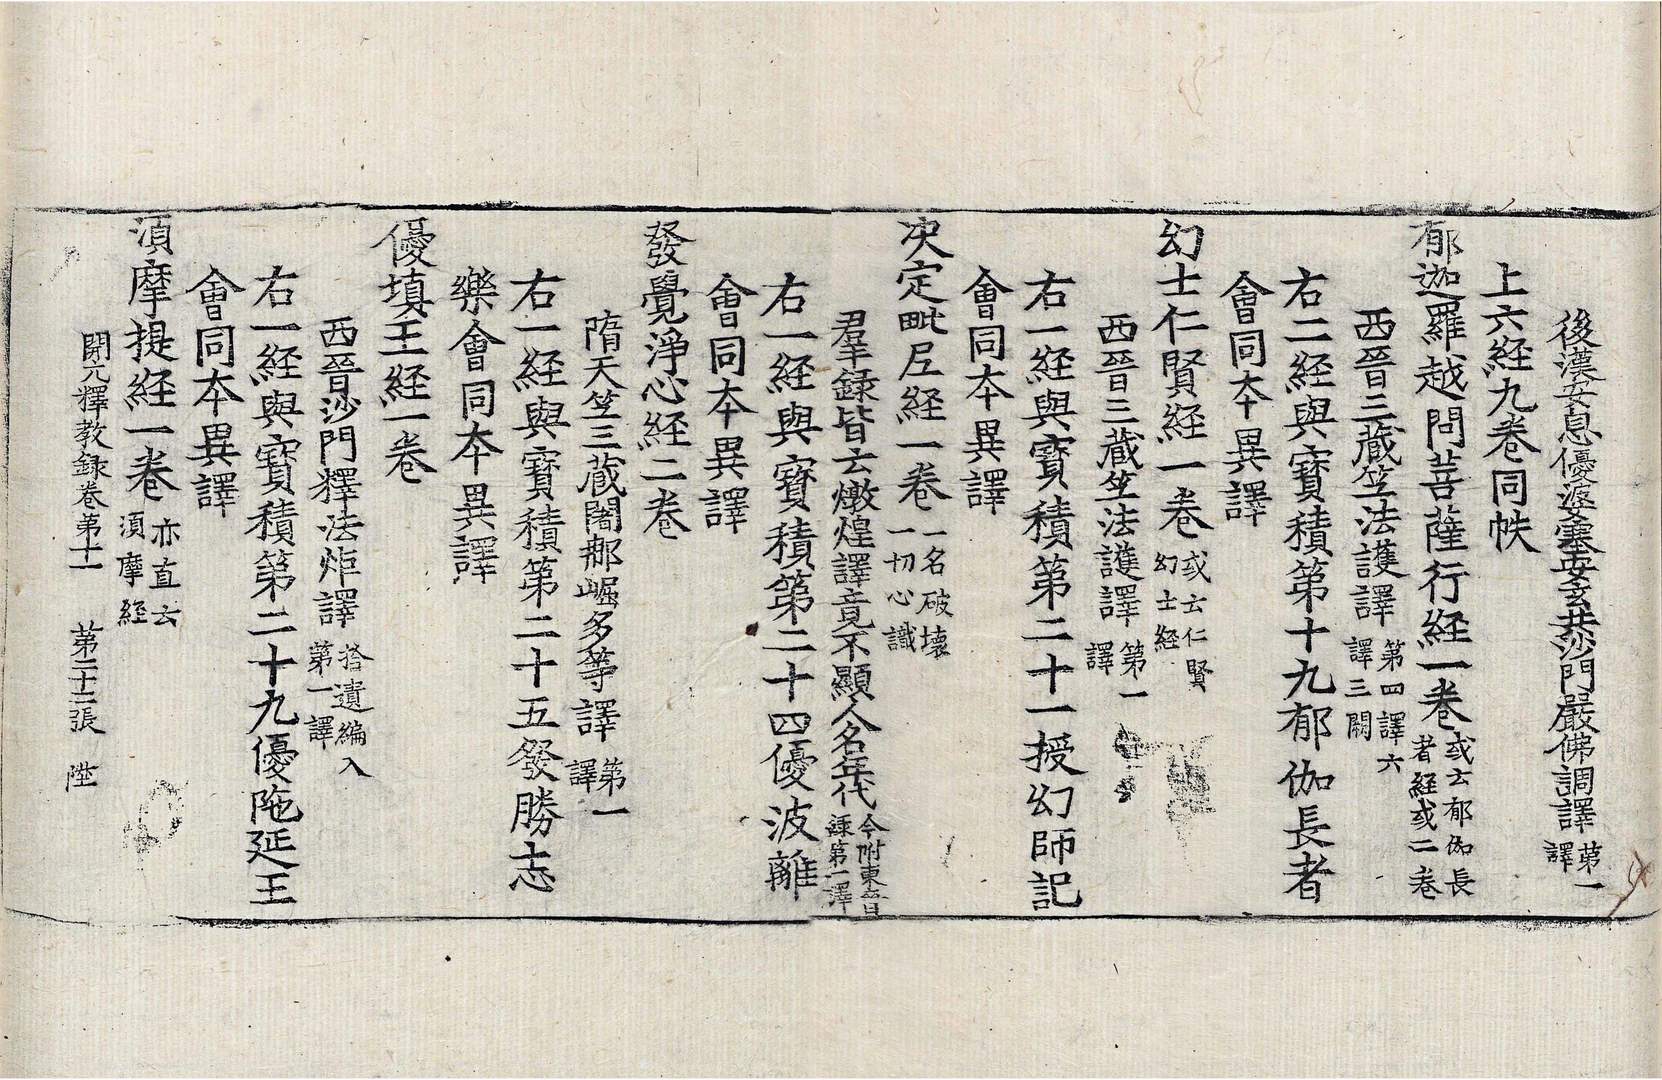 後漢安息優婆塞安玄共沙門嚴佛調譯第一譯
上六経九卷同帙
郁迦羅越問菩薩行経一卷或云郁伽長者経或二卷
西晉三藏竺法護譯第四譯六譯三闕
右二経與寶積第十九郁伽長者
會同本異譯
幻士仁賢経一卷或云仁賢幻士経
西晉三藏竺法護譯第一譯
右一経與寶積第二十一授幻師記
會同本異譯
決定毗尼経一卷一名破壞一切心識
羣録皆云燉煌譯竟不顯人名年代今附東晉録第一譯
右一経與寶積第二十四優波離
會同本異譯
發覺淨心経二卷
隋天竺三藏闍那崛多等譯第一譯
右一経與寶積第二十五發勝志
樂會同本異譯
優填王経一卷
西晉沙門釋法炬譯拾遺編入第一譯
右一経與寶積第二十九優陁延王
會同本異譯
湏摩提経一卷亦直云湏摩経
開元釋教録卷第十一　第二十二張　陛